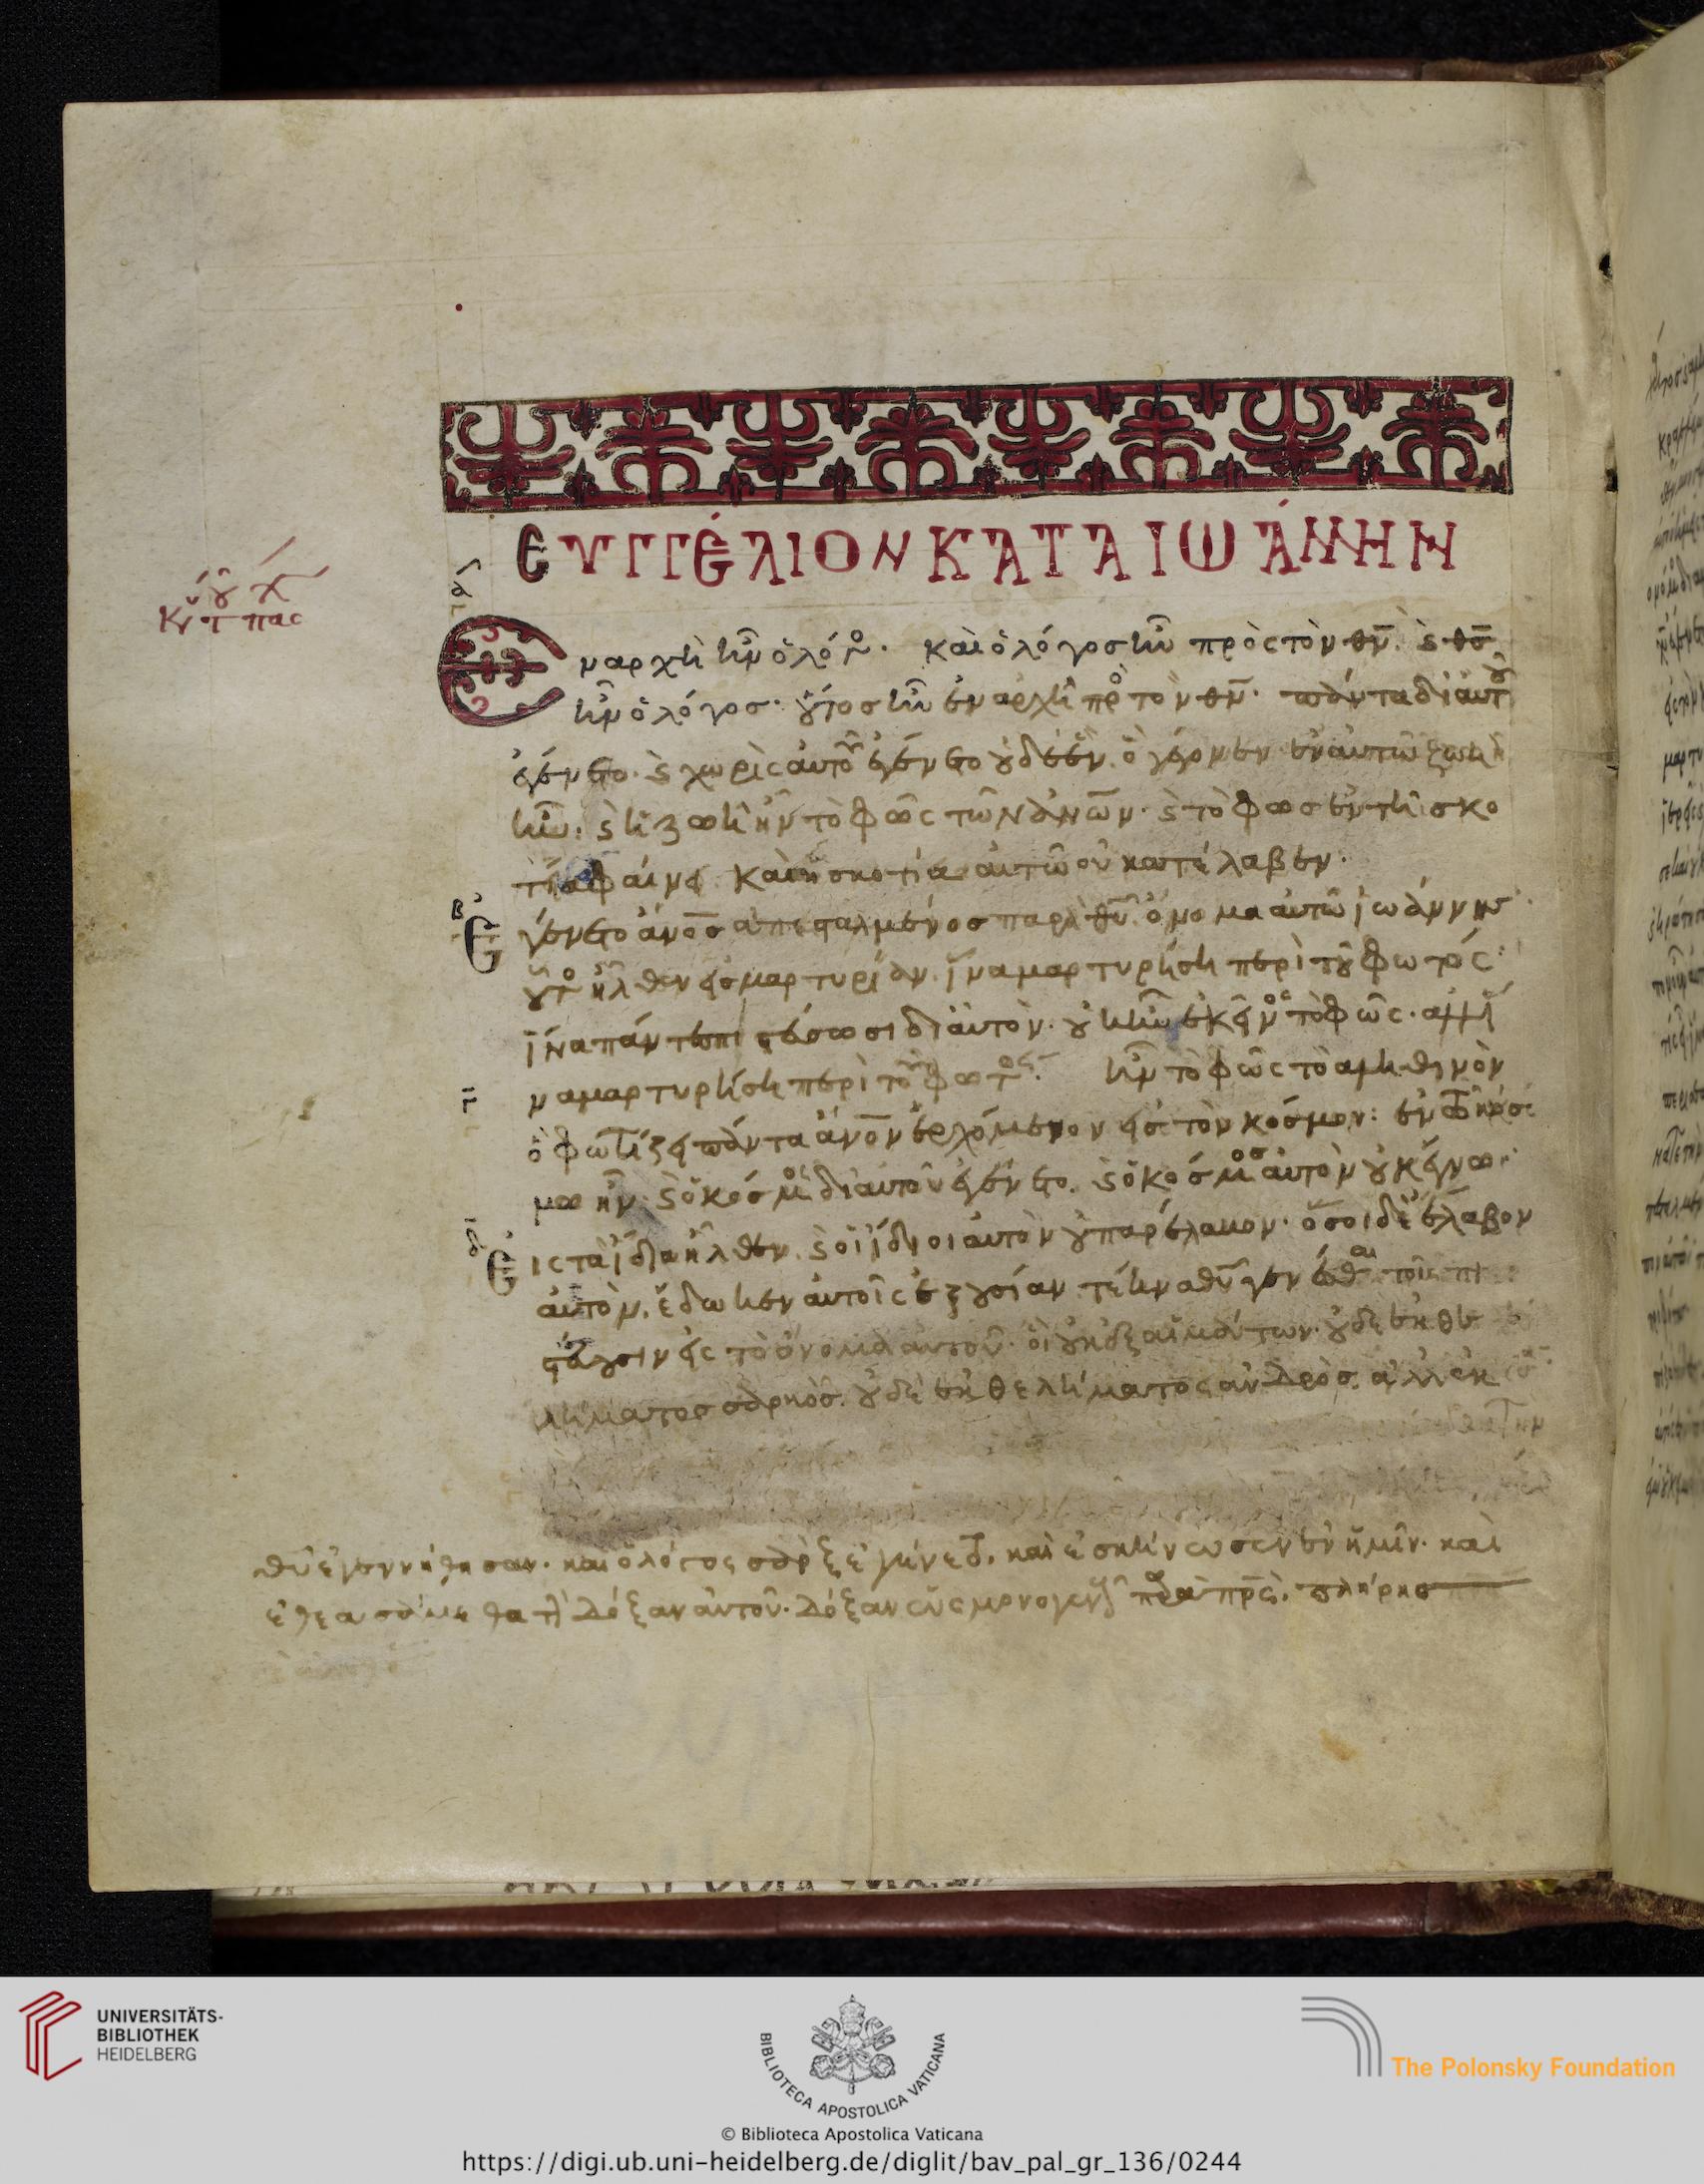 ΕΥΓΓΕΛΙΟΝ ΚΑΤΑ ΙΩΑΝΝΗΝ
Εν αρχῆ ἦν ὁ λόγο. καὶ ὁ λόγος ἦν πρὸς τὸν θν. ϗ θς
ἦν ὁ λόγος. οὗτος ἦν ἐν ἀρχῆ προ τὸν θν. πάντα δι αὐτοῦ
ἐγένετο. ϗ χωρὶς αὐτοῦ ἐγένετο οὐδὲ ἕν. ὃ γέγονεν ἐν αὐτῶ ζωὴ
ἦν. ϗ ἡ ζωὴ ἦν τὸ φῶς τῶν ἀνων. ϗ τὸ φῶς ἐν τῆ σκο
τία φαίνει. καὶ ἡ σκοτία αὐτῶ οὐ κατέλαβεν.
β Εγένετο ἄνος ἀπεσταλμένος παρὰ θυ. ὄνομα αὐτῶ ϊωάννης.
οὗτος ἦλθεν εἰς μαρτυρίαν. ἵνα μαρτυρήση περὶ τοῦ φωτός.
ἵνα πάντες πιστεύσωσι δι αὐτὸν. οὐκ ἦν ἐκεῖνος τὸ φῶς. ἀλλ ἵ
να μαρτυρήση περὶ τοῦ φωτός. ἦν τὸ φῶς τὸ ἀληθινὸν
ὃ φωτίζει πάντα ἄνον ἐρχόμενον εἰς τὸν κόσμον. ἐν τῶ κόσ
μω ἦν. ϗ ὁ κόσμος δι αὐτοῦ ἐγένετο. ϗ ὁ κόσμος αὐτὸν οὐκ ἔγνω.
δ Εις τὰ ἴδια ἦλθεν. ϗ οἱ ἴδιοι αὐτὸν οὐ παρέλαβον. ὅσοι δὲ ἔλαβον
αὐτὸν. ἔδωκεν αὐτοῖς ἐξουσίαν τέκνα θυ γενέσθαι τοῖς πι
στεύουσιν εἰς τὸ ὄνομα αὐτοῦ. οἳ οὐκ ἐξ αἱμάτων. οὐδὲ ἐκ θε
λήματος σαρκὸς. οὐδὲ ἐκ θελήματος ἀνδρὸς. ἀλλ ἐκ
θυ ἐγεννήθησαν. καὶ ὁ λόγος σὰρξ ἐγένετο. καὶ ἐσκήνωσεν ἐν ἡμῖν. καὶ
ἐθεασάμεθα τὴν δόξαν αὐτοῦ. δόξαν ὡς μονογενοῦς παρὰ πρς. πλήρης
UNIVERSITÄTS-
BIBLIOTHEK
HEIDELBERG
BIBLIOTECA APOSTOLICA VATICANA
The Polonsky Foundation
© Biblioteca Apostolica Vaticana
https://digi.ub.uni-heidelberg.de/diglit/bav_pal_gr_136/0244